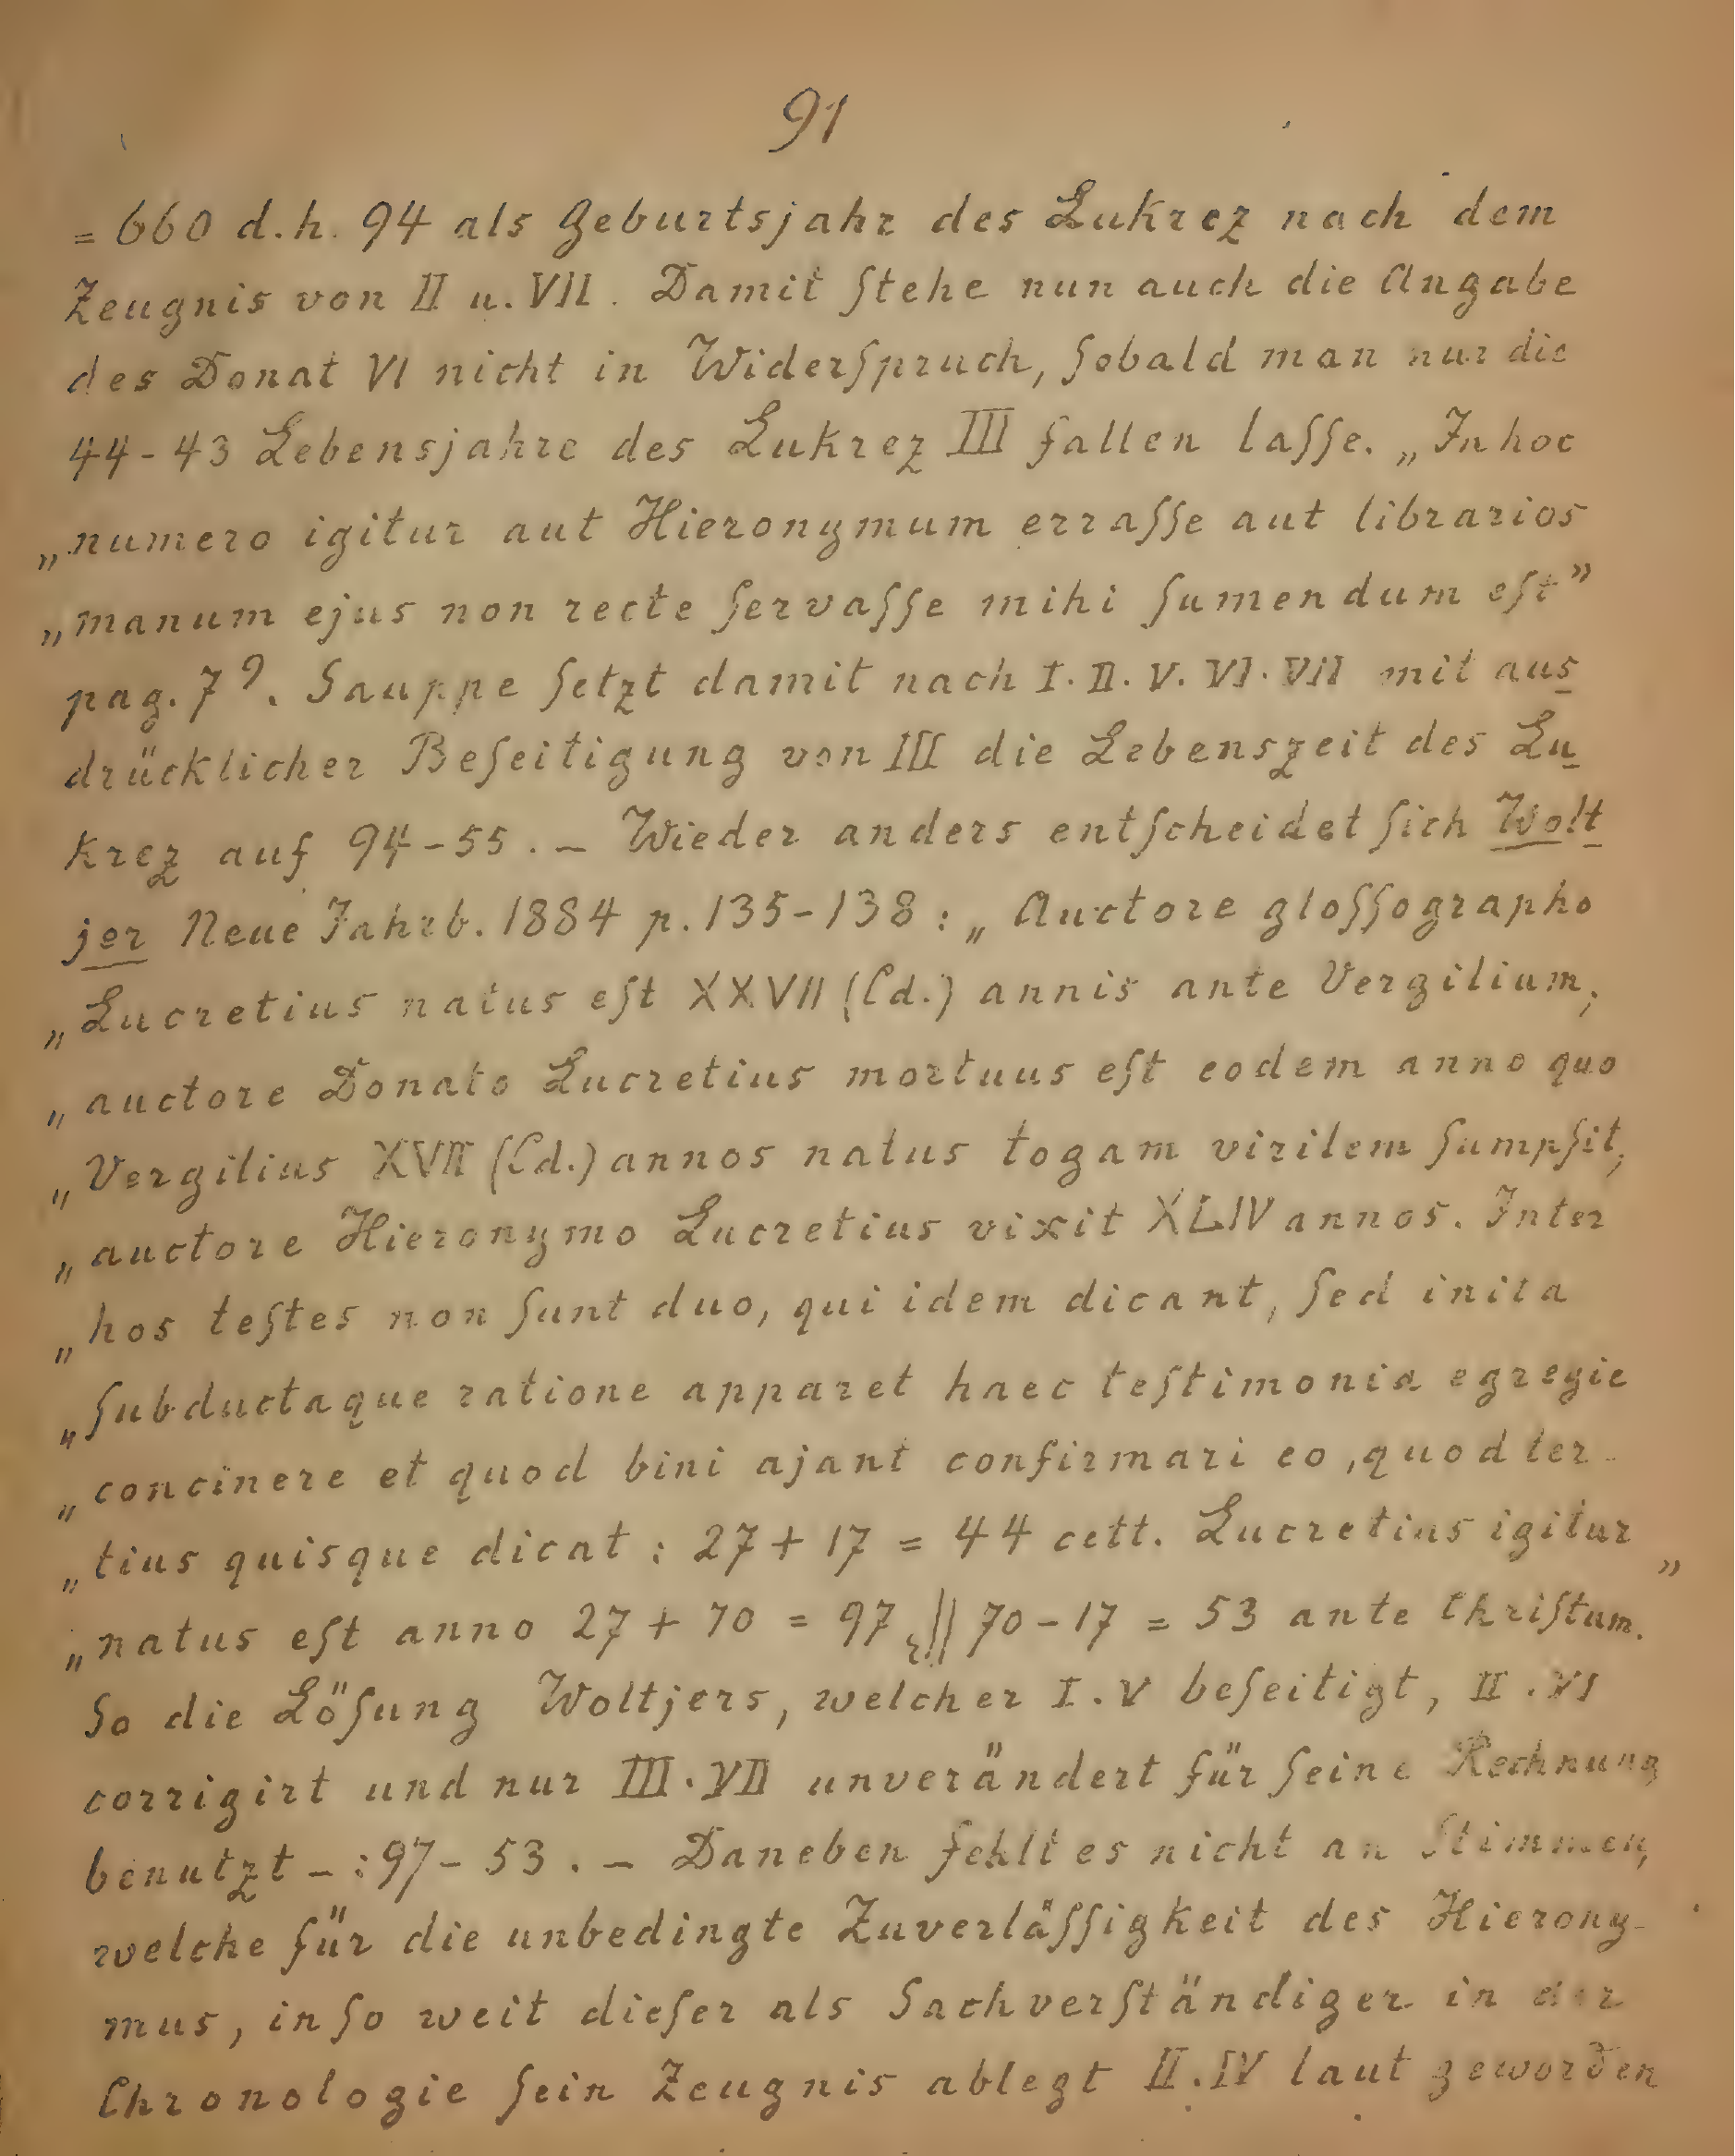 91
= 660 d.h. 94 als Geburtsjahr des Lukrez nach dem
Zeugnis von II u. VII. Damit ſtehe nun auch die Angabe
des Donat VI nicht in Widerſpruch, ſobald man nur die
44-43 Lebensjahre des Lukrez III fallen laſſe. „In hoc
„numero igitur aut Hieronymum erraſſe aut librarios
„manum ejus non recte ſervaſſe mihi ſumendum eſt”
pag. 7⁹. Sauppe ſetzt damit nach I. II. V. VI. VII mit aus
drücklicher Beſeitigung von III die Lebenszeit des Lu
krez auf 94-55. — Wieder anders entſcheidet ſich Wolt
jer Neue Jahrb. 1884 p. 135-138: „Auctore gloſſographo
„Lucretius natus eſt XXVII (Cd.) annis ante Vergilium,
„auctore Donato Lucretius mortuus eſt eodem anno quo
„Vergilius XVII (Cd.) annos natus togam virilem ſumpſit,
„auctore Hieronymo Lucretius vixit XLIV annos. Inter
„hos teſtes non ſunt duo, qui idem dicant, ſed inita
„ſubductaque ratione apparet haec teſtimonia egregie
„concinere et quod bini ajant confirmari eo, quod ter-
„tius quisque dicat: 27 + 17 = 44 cett. Lucretius igitur
„natus eſt anno 27 + 70 = 97 || 70 - 17 = 53 ante Chriſtum.”
So die Löſung Woltjers, welcher I. V beſeitigt, II. VI
corrigirt und nur III. VII unverändert für ſeine Rechnung
benutzt —: 97 - 53. — Daneben fehlt es nicht an Stimmen,
welche für die unbedingte Zuverläſſigkeit des Hierony-
mus, in ſo weit dieſer als Sachverſtändiger in der
Chronologie ſein Zeugnis ablegt II. IV laut geworden